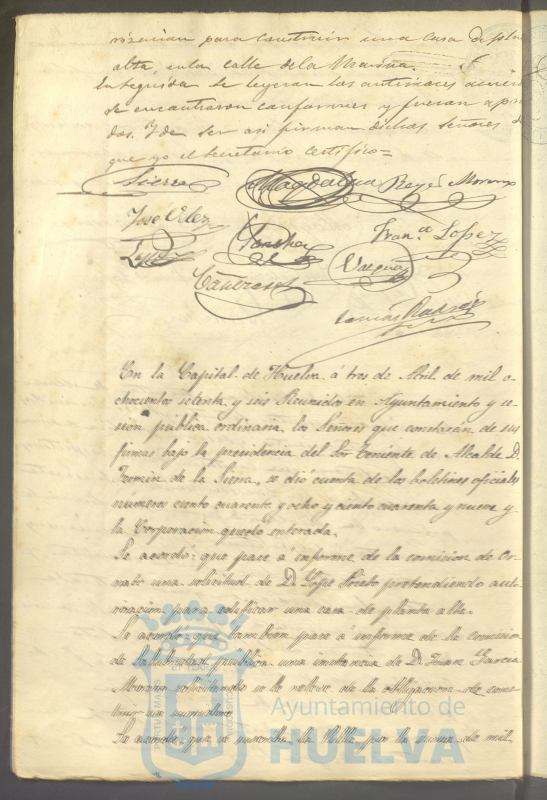 rizacion para construir una casa de planta
alta, en la calle de la Marina.
En seguida se leyeron las anteriores
se encontraron conformes y fueron
das. Y de ser asi firman dichos señores de
que yo el Secretario certifico=
Sierra Magdalena Reyes Moreno
José Velez
Sanchez Fran.co Lopez
Vazquez
Cañizares
Tomás
En la Capital de Huelva á tres de Abril de mil o-
chocientos setenta y seis Reunidos en Ayuntamiento y se-
sion pública ordinaria los Señores que constarán de sus
firmas bajo la presidencia del Sor Teniente de Alcalde D.
Fermin de la Sierra, se dió cuenta de los boletines oficiales
números ciento cuarenta y ocho y ciento cuarenta y nueve y
la Corporacion quedó enterada.
Se acordó: que pase á informe de la comision de Or-
nato una solicitud de D. Lope pretendiendo auto-
rizacion para edificar una casa de planta alta.
Se acordó: que tambien pase á informe de la comision
de salubridad pública una instancia de D. Juan Garcia
Moreno solicitando se le releve de la obligacion de cons-
truir un sumidero
Se acordó: que se por la suma de mil
Ayuntamiento de
HUELVA